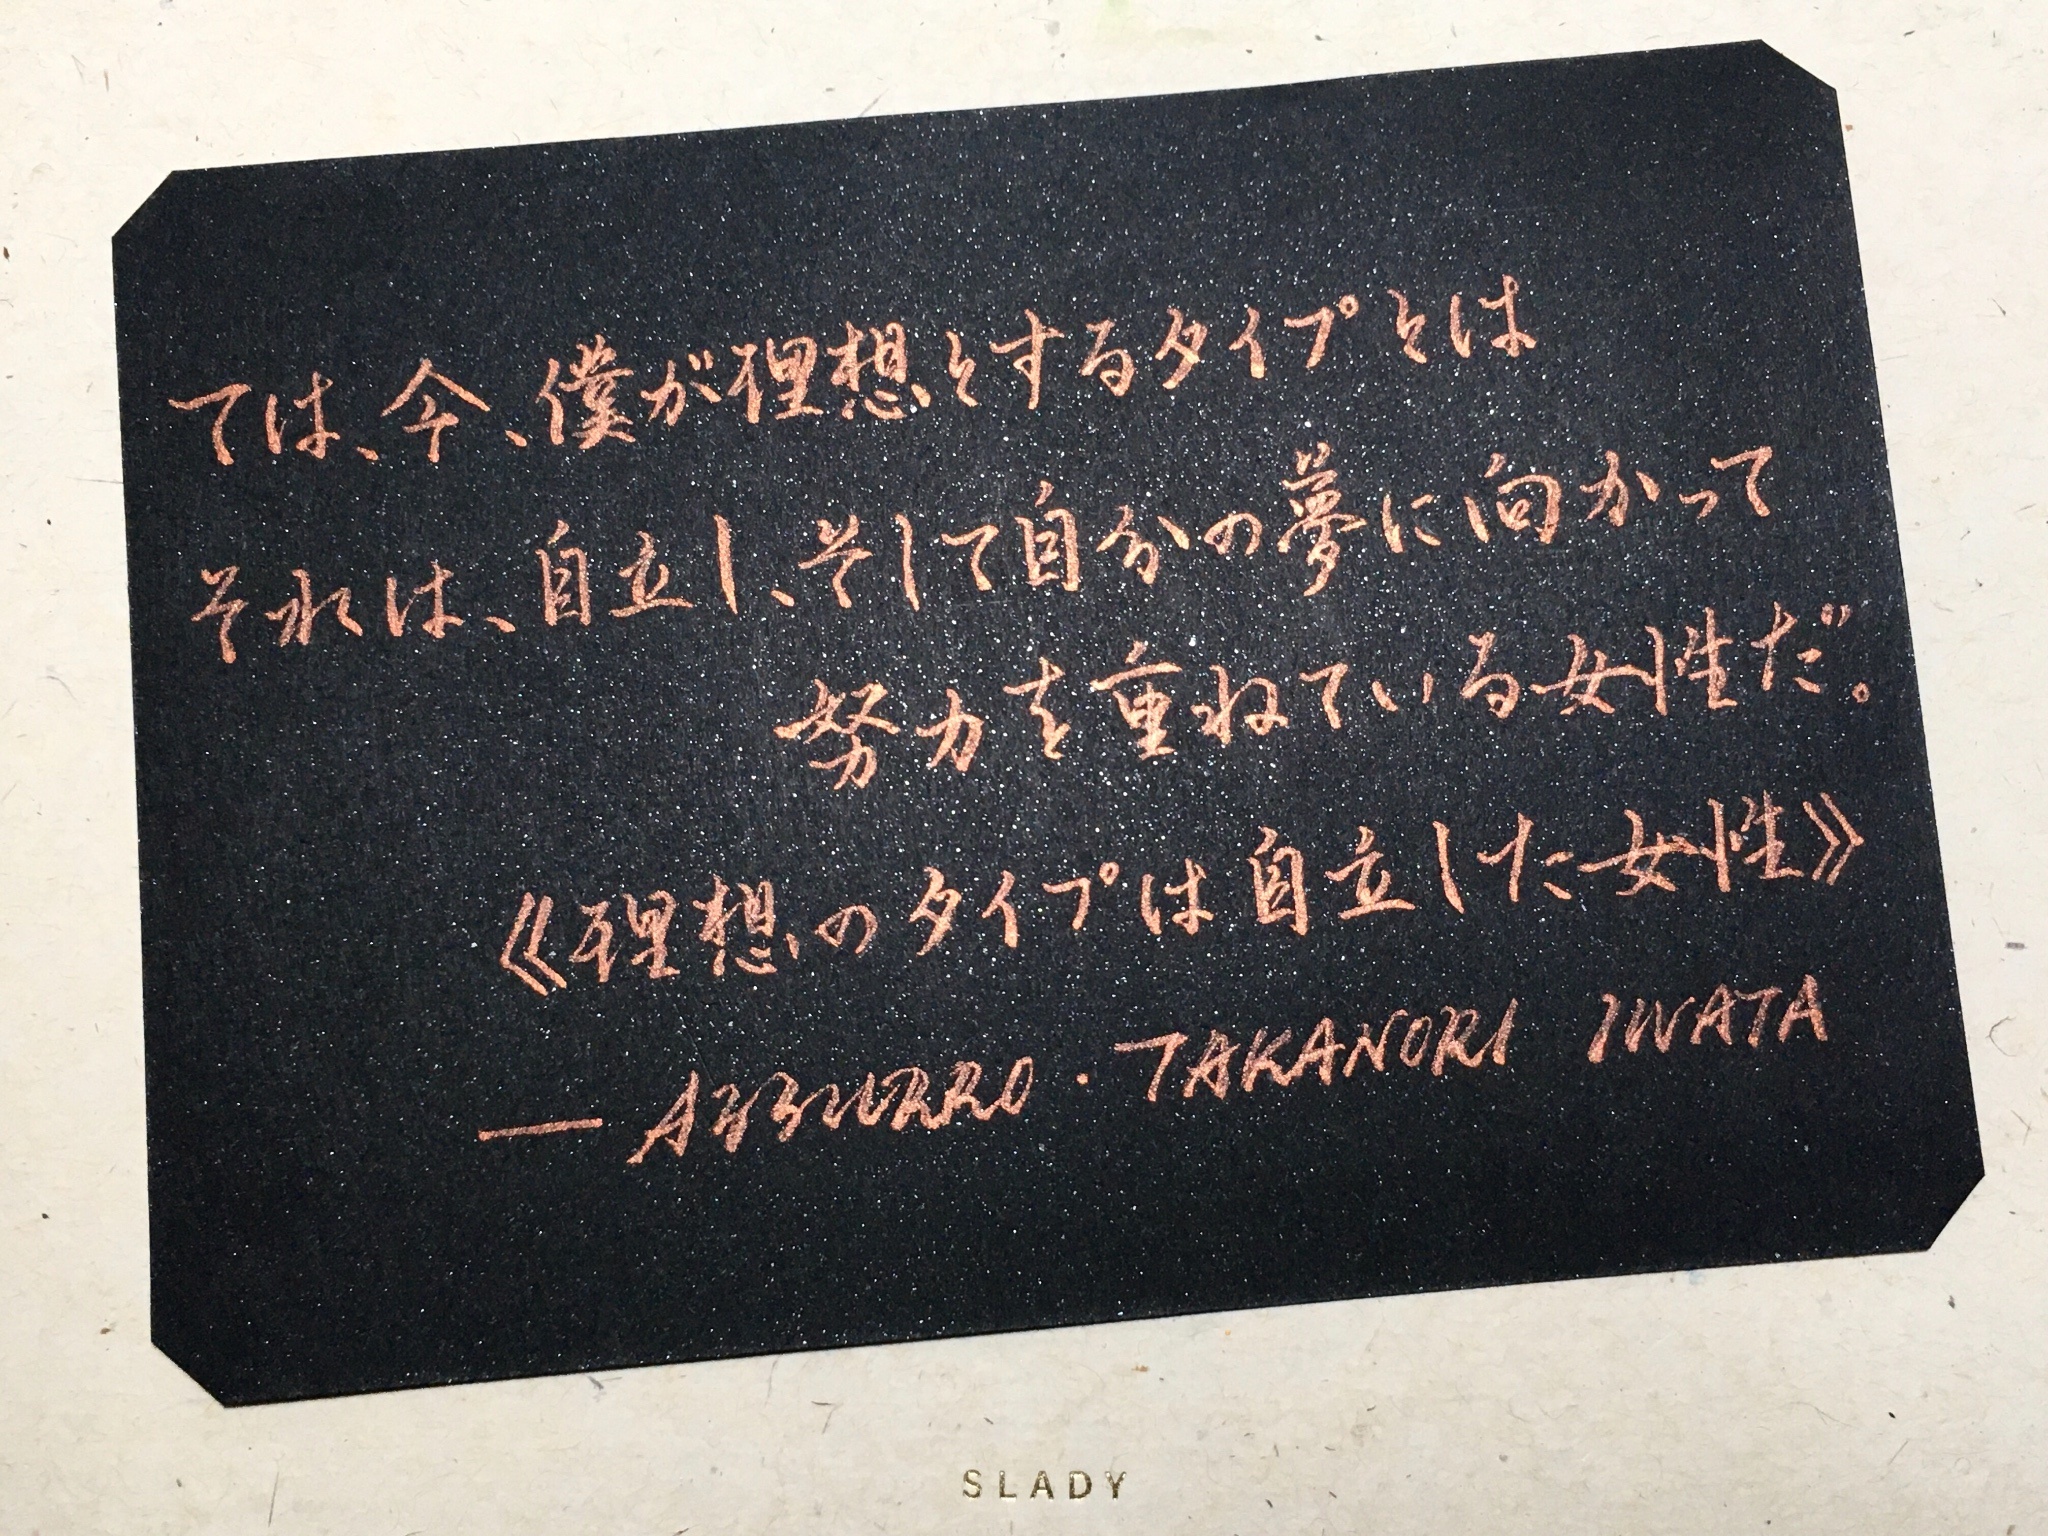 ては、今、僕が理想とするタイプとは
それは、自立し、そして自分の夢に向かって
努力を重ねている女性だ。
《理想のタイプは自立した女性》
— AZZURRO · TAKANORI IWATA
SLADY